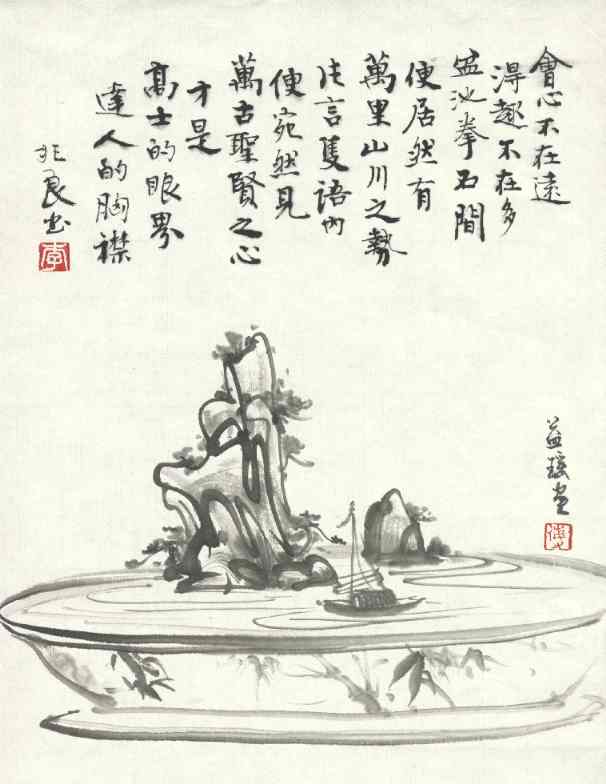 會心不在遠
得趣不在多
盆池拳石間
便居然有
萬里山川之勢
片言隻語內
便宛然見
萬古聖賢之心
才是
高士的眼界
達人的胸襟
李